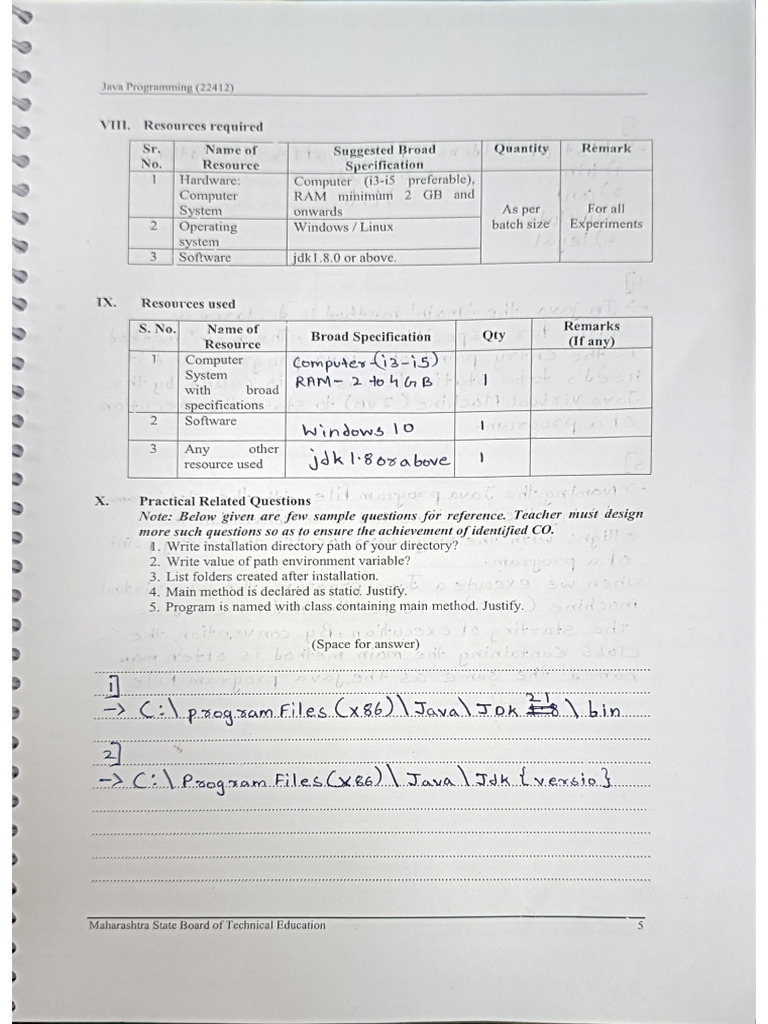 Java Programming (22412)
VIII. Resources required
Sr. No. Name of Resource Suggested Broad Specification Quantity Remark
1 Hardware: Computer System Computer (i3-i5 preferable), RAM minimum 2 GB and onwards As per batch size For all Experiments
2 Operating system Windows / Linux
3 Software jdk1.8.0 or above.
IX. Resources used
S. No. Name of Resource Broad Specification Qty Remarks (If any)
1 Computer System with broad specifications Computer-(i3-i5) RAM- 2 to 4GB 1
2 Software Windows 10 1
3 Any other resource used jdk 1.8 or above 1
X. Practical Related Questions
Note: Below given are few sample questions for reference. Teacher must design
more such questions so as to ensure the achievement of identified CO.
1. Write installation directory path of your directory?
2. Write value of path environment variable?
3. List folders created after installation.
4. Main method is declared as static. Justify.
5. Program is named with class containing main method. Justify.
(Space for answer)
1]
-> C:\program Files(x86)\Java\JDK 21\bin
2]
-> C:\Program Files(x86)\Java\Jdk{versio}
Maharashtra State Board of Technical Education 5